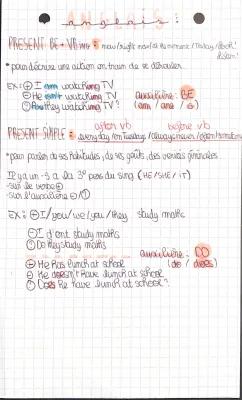 anglais :
PRESENT BE + VB ing : now/right now/at the moment/today/look!
listen!
*pour décrire une action en train de se dérouler.
EX: ⊕ I am watching TV
⊖ He isn't watching TV auxiliaire: BE
? Are they watching TV? (am / are / is)
after vb before vb
PRESENT SIMPLE : everyday/on Tuesday/always/never/often/sometimes
*pour parler de ses habitudes, de ses goûts, des vérités générales.
Il y a un -S à la 3e pers du sing (HE/SHE/IT)
-sur le verbe ⊕
-sur l'auxiliaire ⊖/?
EX: ⊕ I/you/we/you/they study maths
⊖ I don't study maths
? Do they study maths
auxiliaire: DO
⊕ He has lunch at school (do / does)
⊖ He doesn't have lunch at school
? Does he have lunch at school?